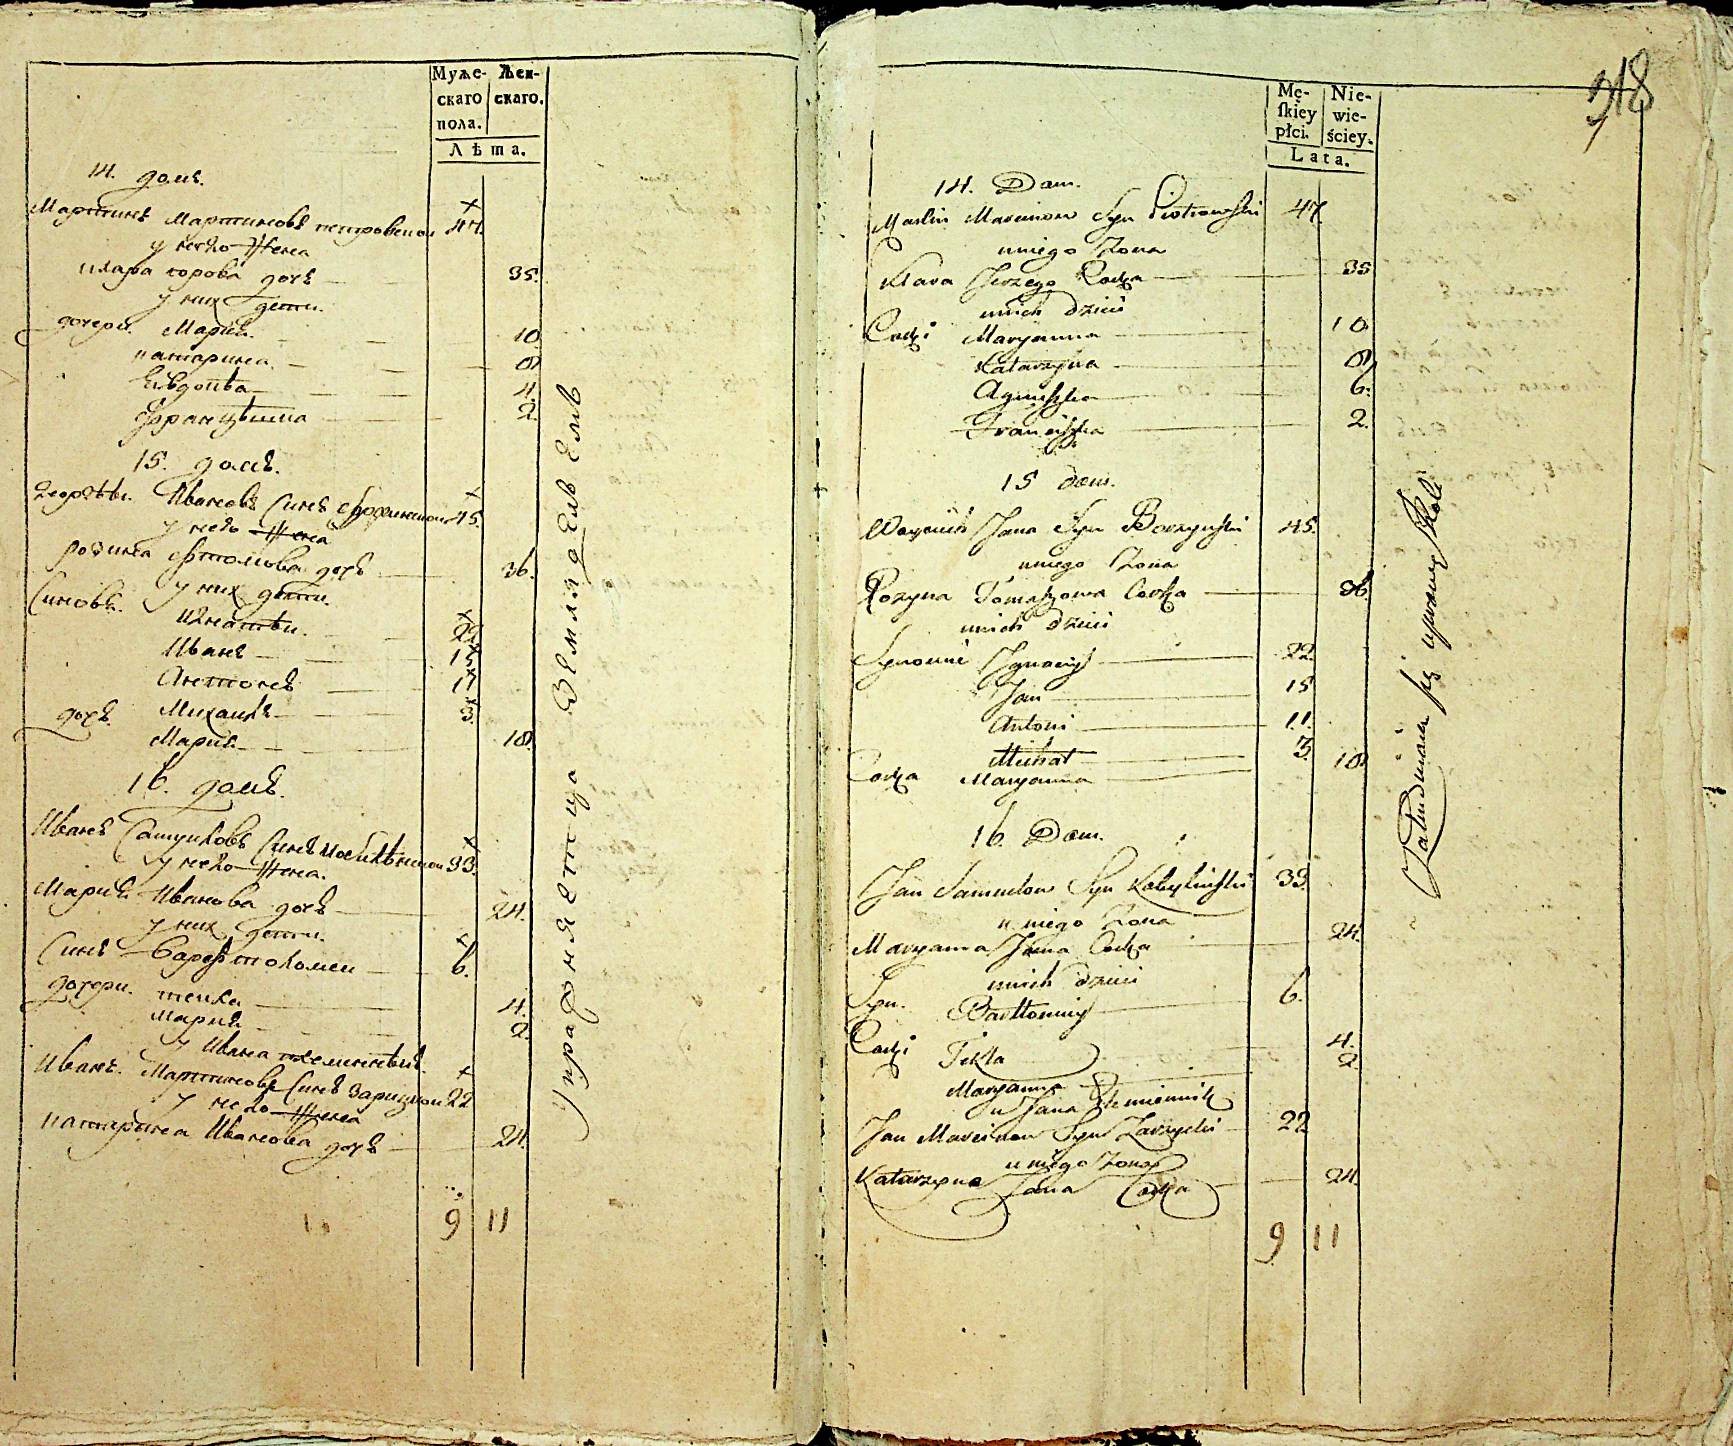 Муже-
скаго
пола.
Жен-
скаго.
Лѣта.
14. домъ.
Мартинъ Мартиновъ петровскои 47.
у него жена
клара дочь 35.
у них дети.
дочери. Мариа. 10.
катарина 8
4.
Францѣшка 2.
15. домъ.
Ивановъ Синъ 45.
у него жена
розина дочь 36.
у них дѣти.
Синовья. Игнатѣи. 22
Иванъ 15
Антонеъ 11
Михаилъ 3.
дочь. Мариа 18.
16. домъ.
Иванъ Самуиловъ Синъ 33.
у него жена.
Мариа Иванова дочь 24.
у них дети.
Синъ Барфтоломеи 6.
дочери. текла 4.
Мариа 2.
у Ивана племенникъ.
Иванъ Мартиновъ Синъ Зарицкои 22
у него жена
катарина Иванова дочь 24.
9 11
Упражняетца Землядельемъ
318
Mę-
skiey
płci.
Nie-
wie-
ściey.
Lata.
14. Dom.
Marcin Marcinow Syn Piotrowski 47.
u niego Żona
Klara Jerzego Corka 35
u nich dzieci
Corki Maryanna 10.
Katarzyna 8.
Agnieszka 6.
Franciszka 2.
15 dom.
Woyciech Jana Syn 45.
u niego Żona
Rozyna Tomaszowa Corka 36.
u nich dzieci
Synowie Ignacy 22.
Jan 15
Antoni 11.
Michał 3.
Corka Maryanna 18
16. Dom.
Jan Samuelow Syn Kobyliński 33.
u niego Żona
Maryanna Jana Corka 24.
u nich dzieci
Syn. Bartłomiey 6.
Corki Tekla 4.
Maryanna 2
u Jana Plemiennik
Jan Marcinow Syn Zarzycki 22
u niego Żona
Katarzyna Jana Corka 24.
9 11
Zatrudniaia się uprawą Roli